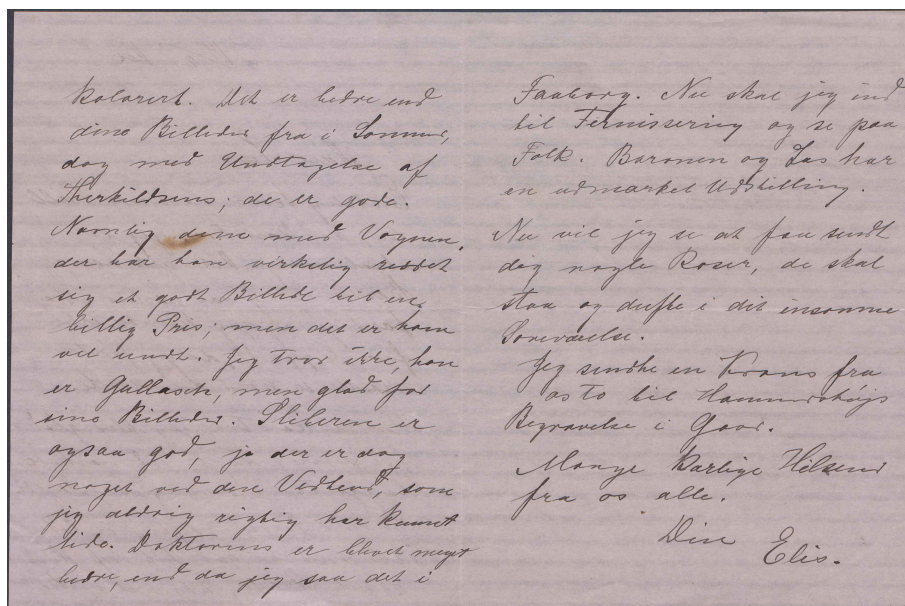 kolorert. Det er bedre end
dine Billeder fra i Sommer,
dog med Undtagelse af
Therkildsens; de er gode.
Navnlig dem med Vognen,
der har han virkelig reddet
sig et godt Billede til en
billig Pris; men det er ham
vel undt. Jeg tror ikke, han
er Gallasch, men glad for
sine Billeder. Sliberen er
ogsaa god, jo der er dog
noget ved den Vedbend, som
jeg aldrig rigtig har kunnet
lide. Doktorens er blevet meget
bedre, end da jeg saa det i
Faaborg. Nu skal jeg ind
til Fernissering og se paa
Folk. Baronen og Las har
en udmærket Udstilling.
Nu vil jeg se at faa sendt
dig nogle Roser, de skal
staa og dufte i dit ensomme
Soveværelse.
Jeg sendte en Krans fra
os to til Hammershøjs
Begravelse i Gaar.
Mange kærlige Hilsener
fra os alle.
Din
Elis.